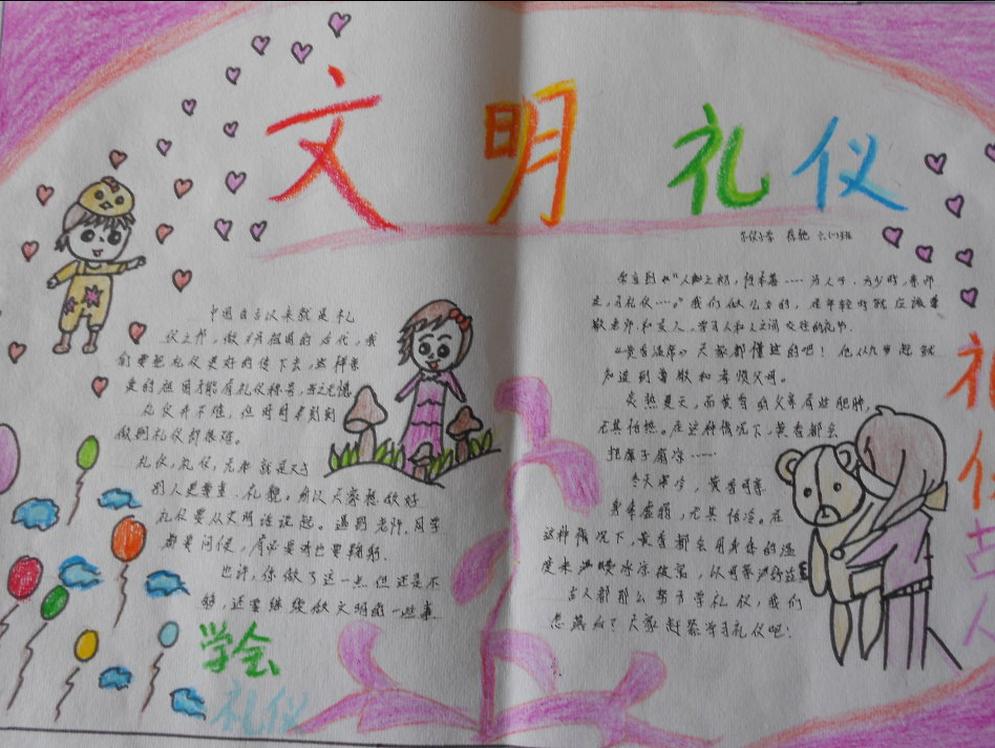 文明礼仪
六(一)班
中国自古以来就是礼
仪之邦,做为祖国的后代,我
们要把礼仪更好的传下去,这样亲
爱的祖国才能有礼仪称号,
礼仪并不难,但时时刻刻
做到礼仪都很难。
礼仪,礼仪,元本就是对
别人要尊重、礼貌。所以大家想做好
礼仪要从文明话说起。遇到老师、同学
都要问候,有必要时也要鞠躬。
也许,你做了这一点但还是不
够,还要继续做文明的一些事。
学会
礼仪
“人之初,性本善……为人子,方少时,亲师
友,习礼仪……。”我们做公女的,在年轻时就应该尊
敬老师和友人,学习人和人之间交往的礼节.
《黄香温席》大家都懂这的吧!他从九岁起就
知道到尊敬和孝顺父母。
炎热夏天,而黄香的父亲有些肥胖,
尤其怕热。在这种情况下,黄香都会
把席子扇凉……
冬天寒冷,黄香母亲
身体虚弱,尤其怕冷。在
这种情况下,黄香都会用身体的温
度来温暖冰凉被窝,
古人都那么努力学礼仪,我们
怎能落后?大家赶紧学习礼仪吧!
礼
仪
古
人